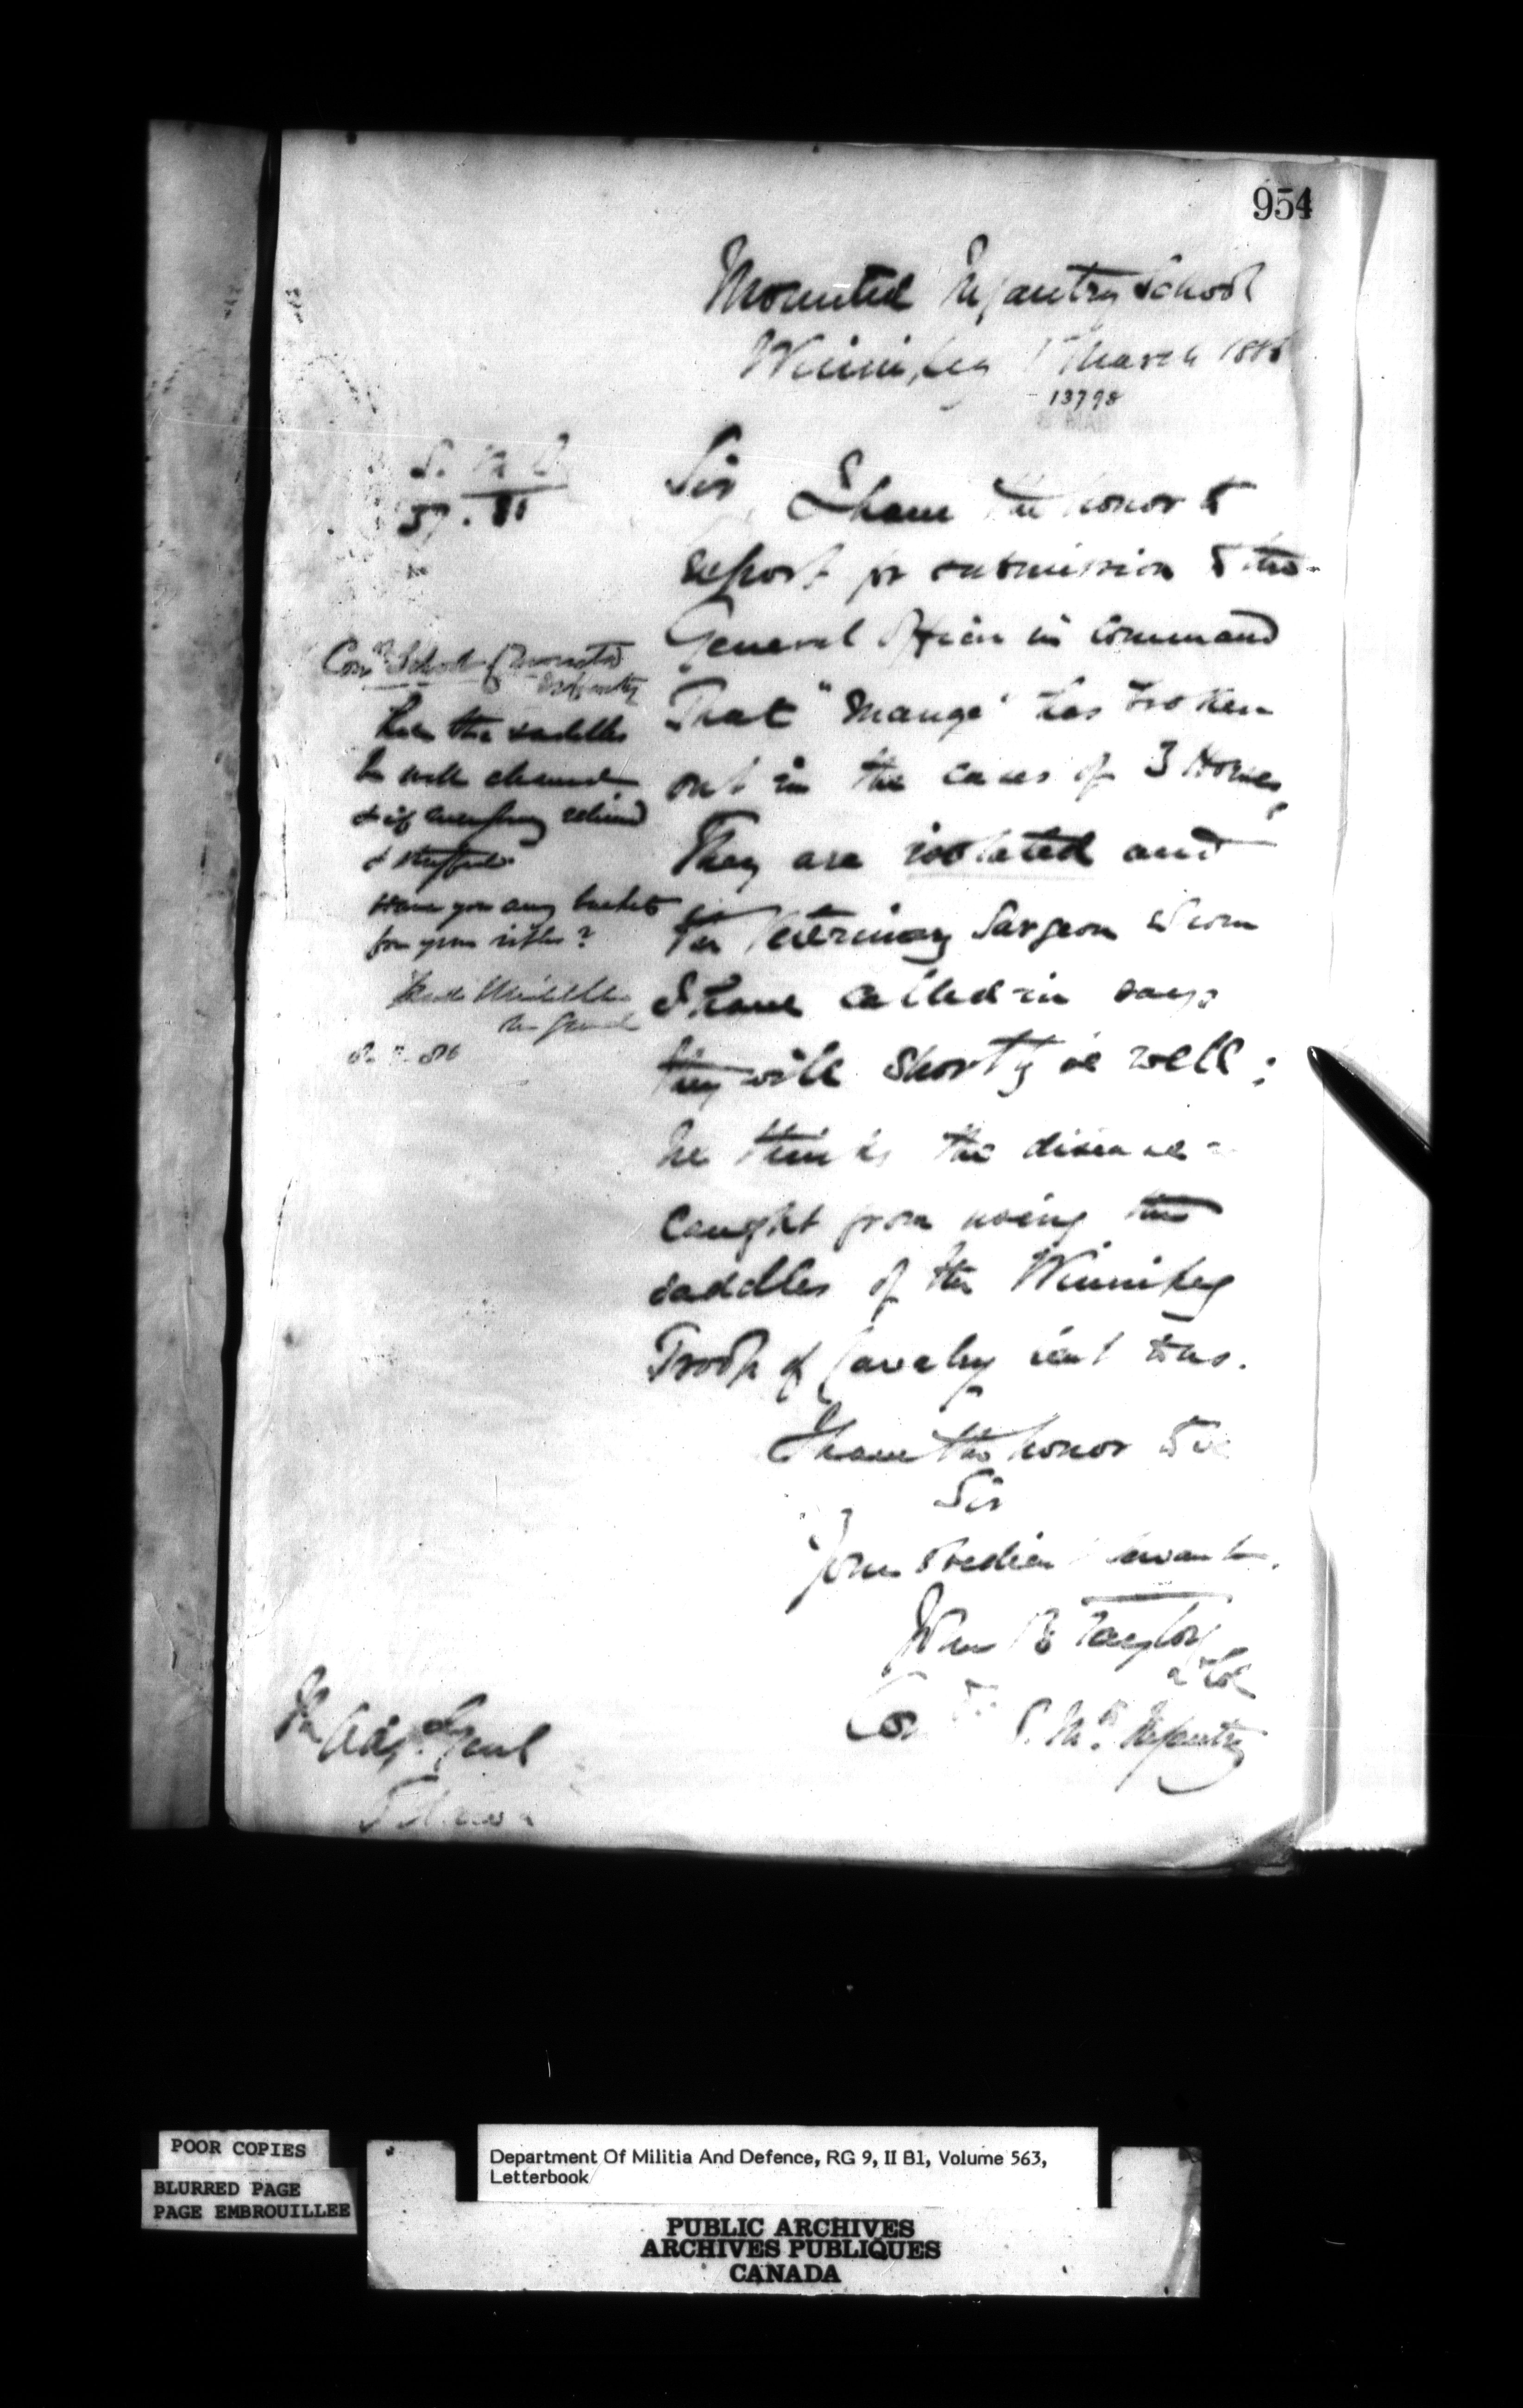 954
Mounted Infantry School
Winnipeg 1st March 1886
13798
Sir
I have the honor to
report for submission to the
General Officer in Command
That "Mange" has broken
out in the cases of 3 Horses,
They are isolated and
the Veterinary Surgeon whom
I have called in says
they will shortly be well;
he thinks the disease
caught from using the
saddles of the Winnipeg
Troop of Cavalry lent to us.
I have the honor to be
Sir
Your obedient servant.
Wm B Taylor
Lt Col
Comdt S. Md. Infantry
The Adjt. Genl
Ottawa
S. M I
57. 81
Comdt School of Mounted
Infantry
the saddles
be well cleaned
& if necessary relined
& stuffed
Have you any buckets
for your rifles?
Fred Middleton
M General
86
POOR COPIES
BLURRED PAGE
PAGE EMBROUILLEE
Department Of Militia And Defence, RG 9, II B1, Volume 563,
Letterbook
PUBLIC ARCHIVES
ARCHIVES PUBLIQUES
CANADA